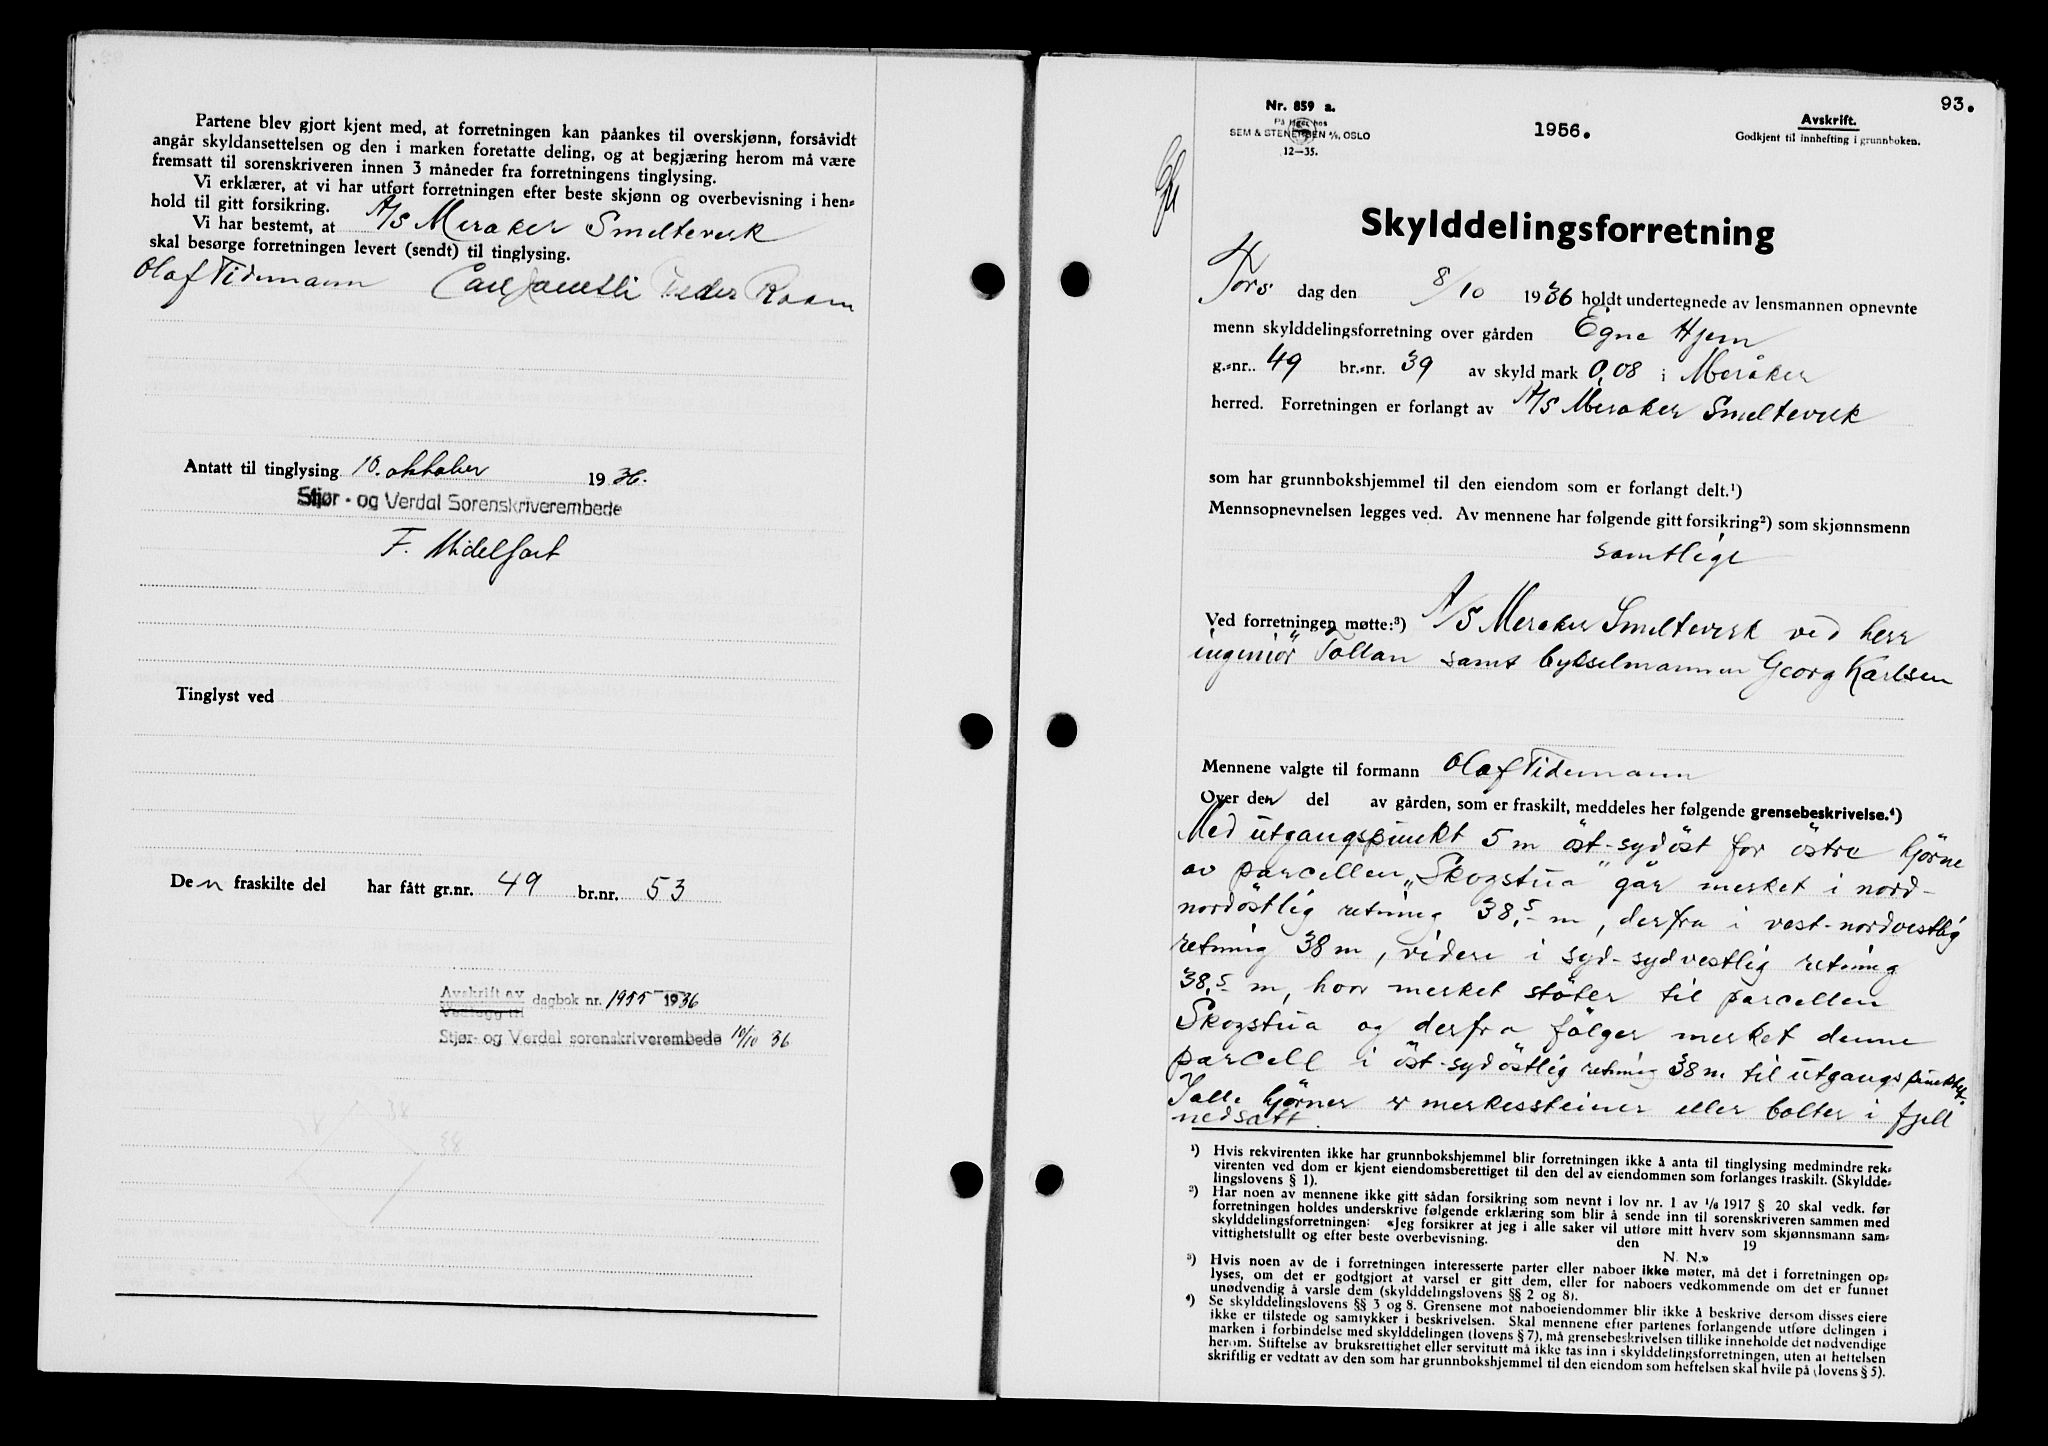 Partene blev gjort kjent med, at forretningen kan påankes til overskjønn, forsåvidt
angår skyldansettelsen og den i marken foretatte deling, og at begjæring herom må være
fremsatt til sorenskriveren innen 3 måneder fra forretningens tinglysing.
Vi erklærer, at vi har utført forretningen efter beste skjønn og overbevisning i hen-
hold til gitt forsikring.
Vi har bestemt, at A/S Meraker Smelteverk
skal besørge forretningen levert (sendt) til tinglysing.
Olaf Tidemann Peder Raaen
Antatt til tinglysing 10. oktober 1936.
Stjør- og Verdal Sorenskriverembede
F. Midelfart
Tinglyst ved
Den fraskilte del har fått gr.nr. 49 br.nr. 53
Avskrift av
Vedlegg til
dagbok nr. 1955 - 1936
Stjør- og Verdal sorenskriverembede 10/10 36
38
38
93.
Nr. 859 a.
På lager hos
SEM & STENERSEN A/S, OSLO
12—35.
1956.
Avskrift.
Godkjent til innhefting i grunnboken.
Skylddelingsforretning
Tors dag den 8/10 1936 holdt undertegnede av lensmannen opnevnte
menn skylddelingsforretning over gården Egne Hjem
g.-nr. 49 br.-nr. 39 av skyld mark 0,08 i Meråker
herred. Forretningen er forlangt av A/S Meraker Smelteverk
som har grunnbokshjemmel til den eiendom som er forlangt delt.¹)
Mennsopnevnelsen legges ved. Av mennene har følgende gitt forsikring²) som skjønnsmenn
samtlige
Ved forretningen møtte:³) A/S Meraker Smelteverk ved herr
ingeniör Tollan samt bykselmannen Georg Karlsen
Mennene valgte til formann Olaf Tidemann
Over den del av gården, som er fraskilt, meddeles her følgende grensebeskrivelse.⁴)
Med utgangspunkt 5 m öst-sydöst for östre hjörne
av parcellen „Skogstua" går merket i nord-
nordöstlig retning 38,5 m, derfra i vest-nordvestlig
retning 38 m, videre i syd-sydvestlig retning
38,5 m, hvor merket stöter til parcellen
Skogstua og derfra fölger merket denne
parcell i öst-sydöstlig retning 38 m til utgangspunktet.
I alle hjörner er merkessteiner eller bolter i fjell
nedsatt.
¹) Hvis rekvirenten ikke har grunnbokshjemmel blir forretningen ikke å anta til tinglysing medmindre rek-
virenten ved dom er kjent eiendomsberettiget til den del av eiendommen som forlanges fraskilt. (Skyldde-
lingslovens § 1).
²) Har noen av mennene ikke gitt sådan forsikring som nevnt i lov nr. 1 av 1/6 1917 § 20 skal vedk. før
forretningen holdes underskrive følgende erklæring som blir å sende inn til sorenskriveren sammen med
skylddelingsforretningen: «Jeg forsikrer at jeg i alle saker vil utføre mitt hverv som skjønnsmann sam-
vittighetsfullt og efter beste overbevisning. den 19
N. N.»
³) Hvis noen av de i forretningen interesserte parter eller naboer ikke møter, må det i forretningen op-
lyses, om det er godtgjort at varsel er gitt dem, eller for naboers vedkommende om det er funnet
unødvendig å varsle dem (skylddelingslovens §§ 2 og 8).
⁴) Se skylddelingslovens §§ 3 og 8. Grensene mot naboeiendommer blir ikke å beskrive dersom disses eiere
ikke er tilstede og samtykker i beskrivelsen. Skal mennene efter partenes forlangende utføre delingen i
marken i forbindelse med skylddelingen (lovens § 7), må grensebeskrivelsen tillike inneholde det nødvendige
herom. Stiftelse av bruksrettighet eller servitutt må ikke tas inn i skylddelingsforretningen, uten at heftelsen
skriftlig er vedtatt av den som har grunnbokshjemmel til den eiendom som heftelsen skal hvile på (lovens § 5).